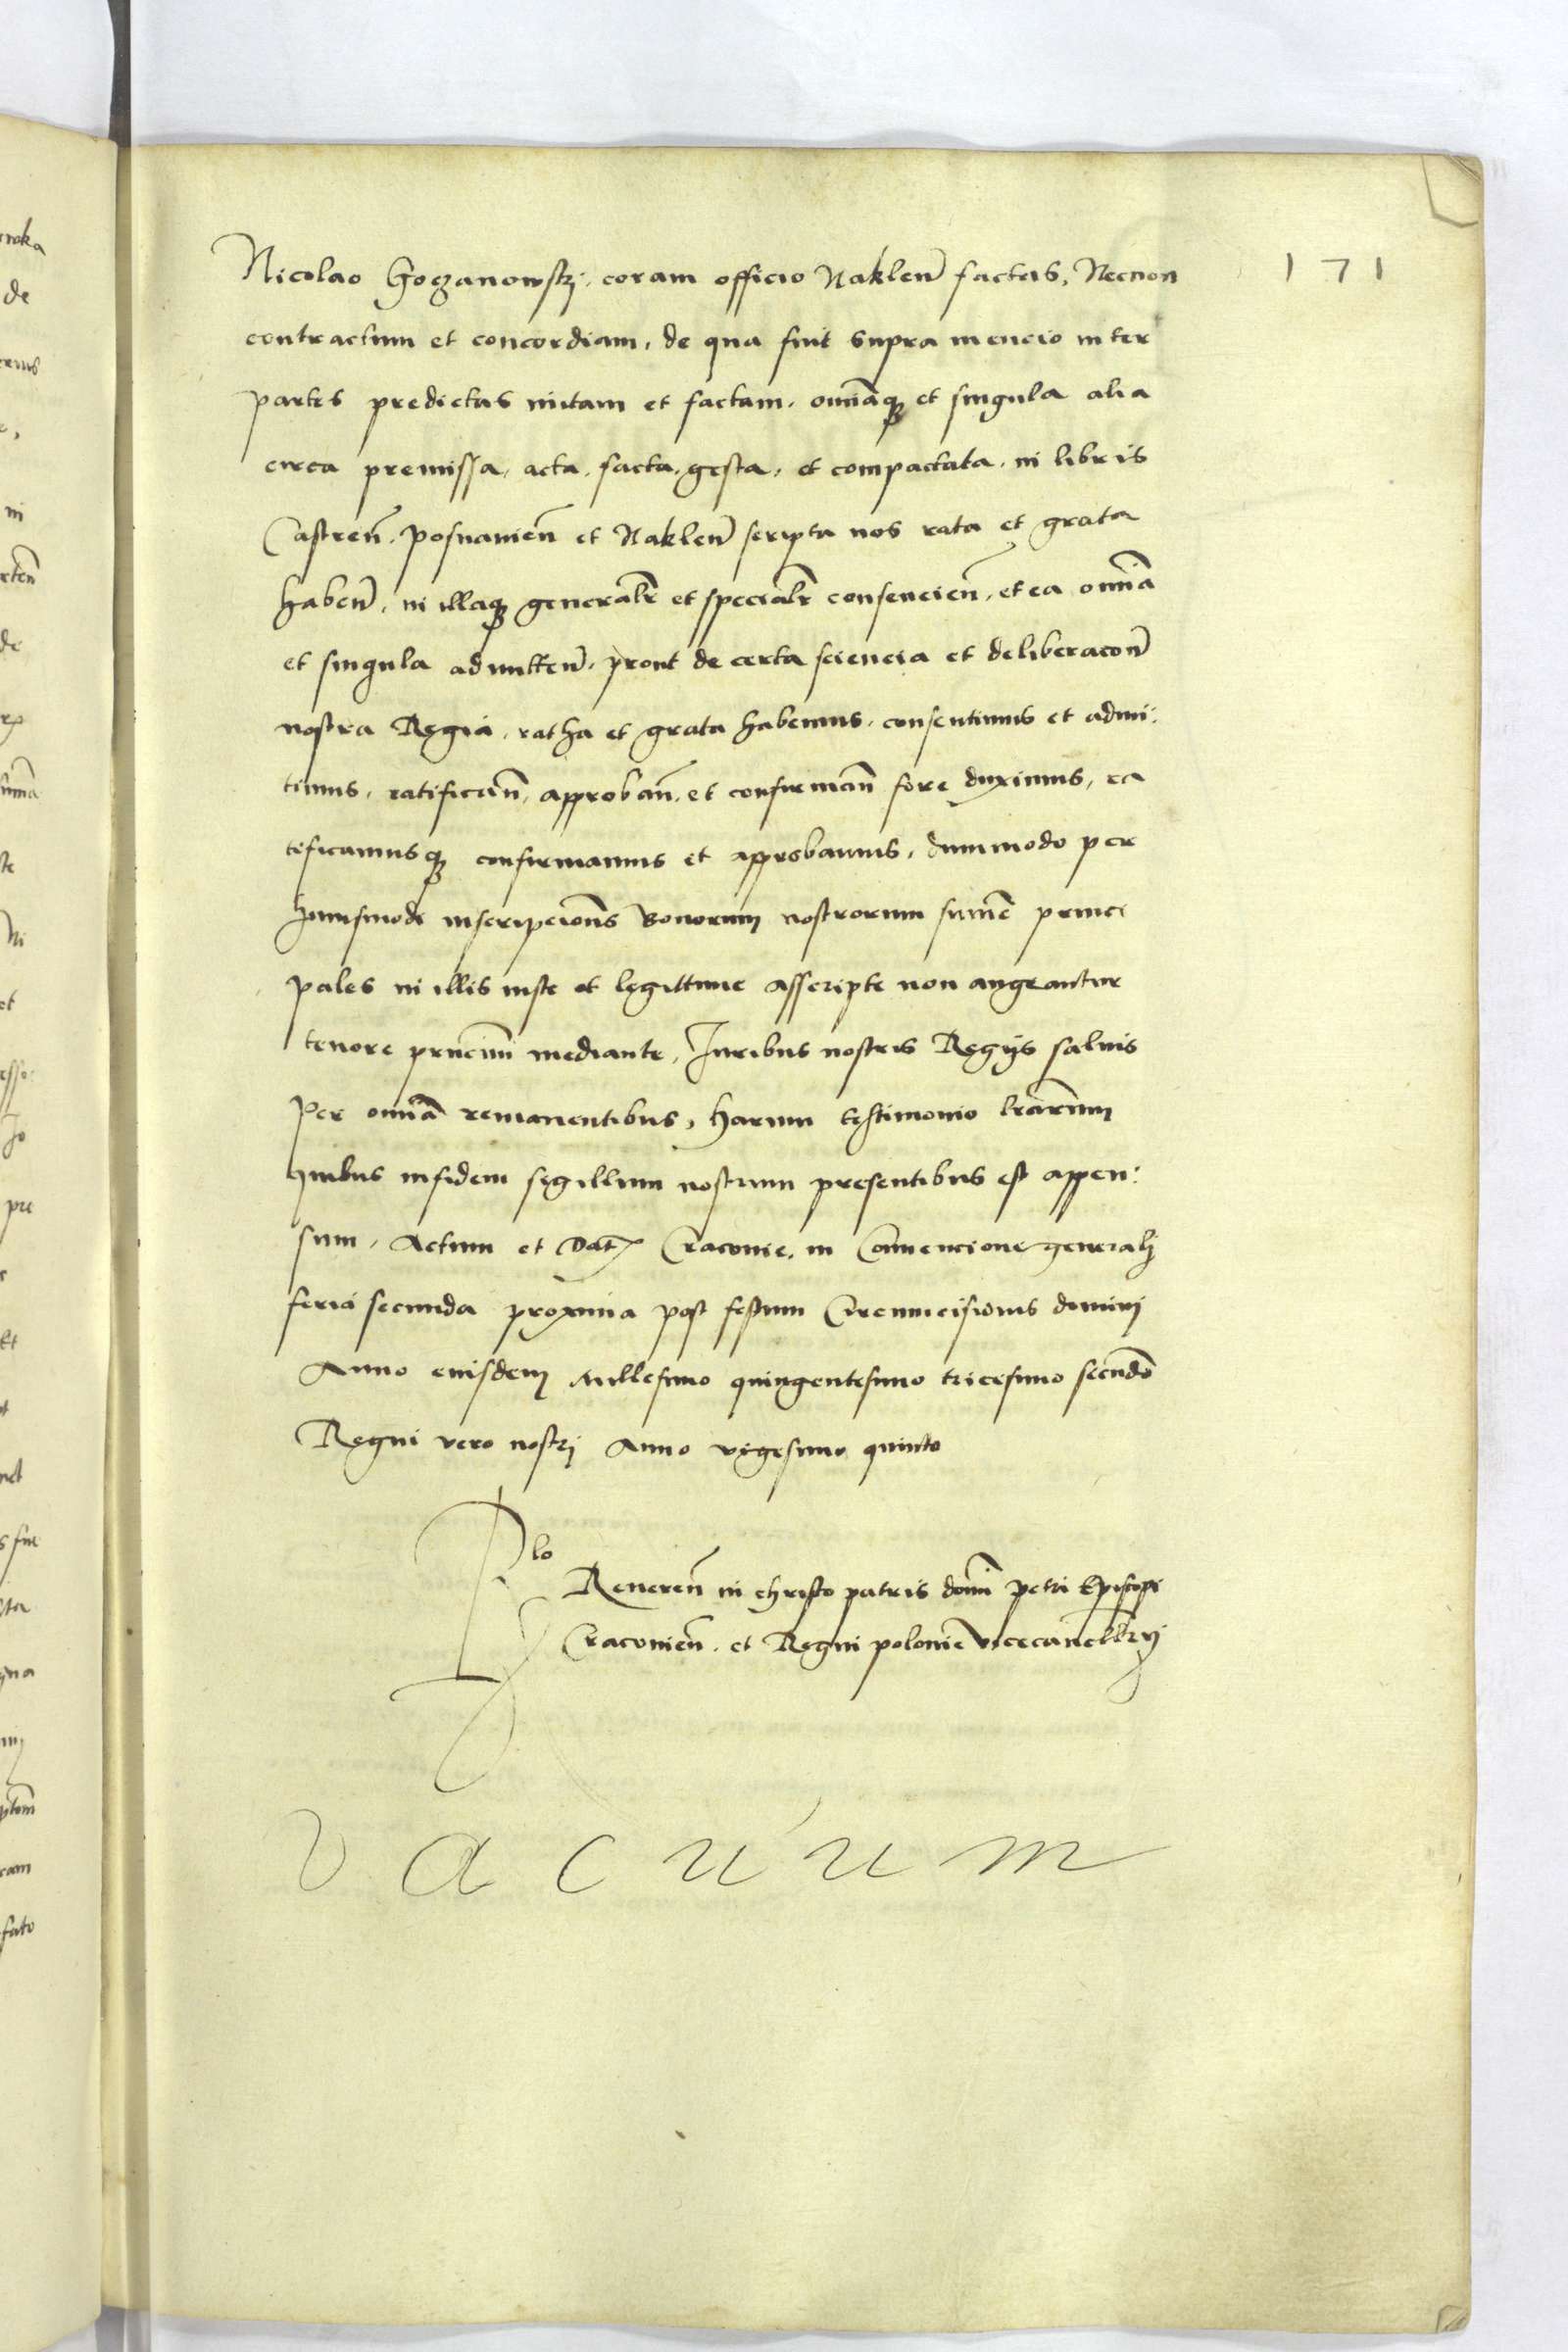 171
Nicolao Gozanowskj, coram officio Naklen̄ factas, Necnon
contractum et concordiam, de qua fuit supra mencio inter
partes predictas initam et factam, omniaq₃ et singula alia
circa premissa, acta, facta, gesta, et compactata, in libris
Castren̄, Posnanien̄ et Naklen̄ scripta nos rata et grata
haben̄, in illaq₃ generalr̄ et specialr̄ consencien̄, et ea omīa
et singula admitten̄, prout de certa sciencia et deliberacōn̄
nostra Regia, ratha et grata habemus, consentimus et admi:
timus, ratifican̄, approban̄, et confirman̄ fore duximus, ra
tificamusq₃ confirmamus et approbamus, dummodo per
huiusmodi inscripcions̄ Bonorum nostrorum sum̄e princi
pales in illis iuste et legittime asscripte non augeantur
tenore prn̄cium mediante, Iuribus nostris Regijs saluis
Per omīa remanentibus, harum testimonio lrārum
quibus infidem sigillum nostrum presentibus est appen:
sum, Actum et Dat Cracovie, in Conuencione generalj
feria secunda proxima post festum Circumcisionis dominj
Anno eiusdem Millesimo quingentesimo tricesimo secundo
Regni vero nostrj Anno vigesimo quinto
Rlo
Reueren̄ in christo patris dom̄i petri Episcopi
Cracovien̄, et Regni polonie vicecancellrij
vacuum